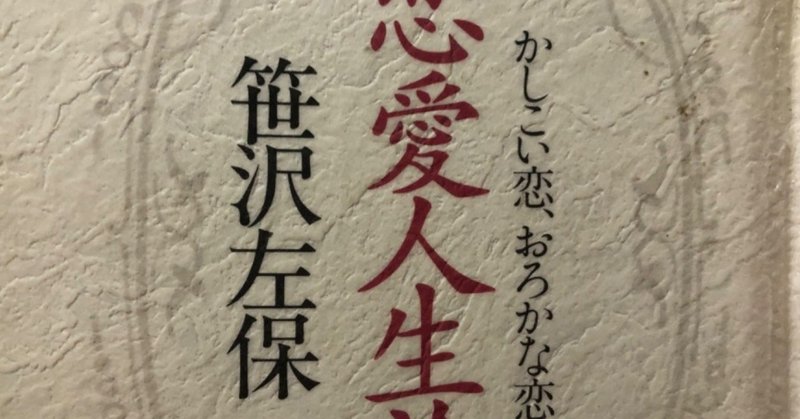 かしこい恋、おろかな恋
恋愛人生
笹沢左保